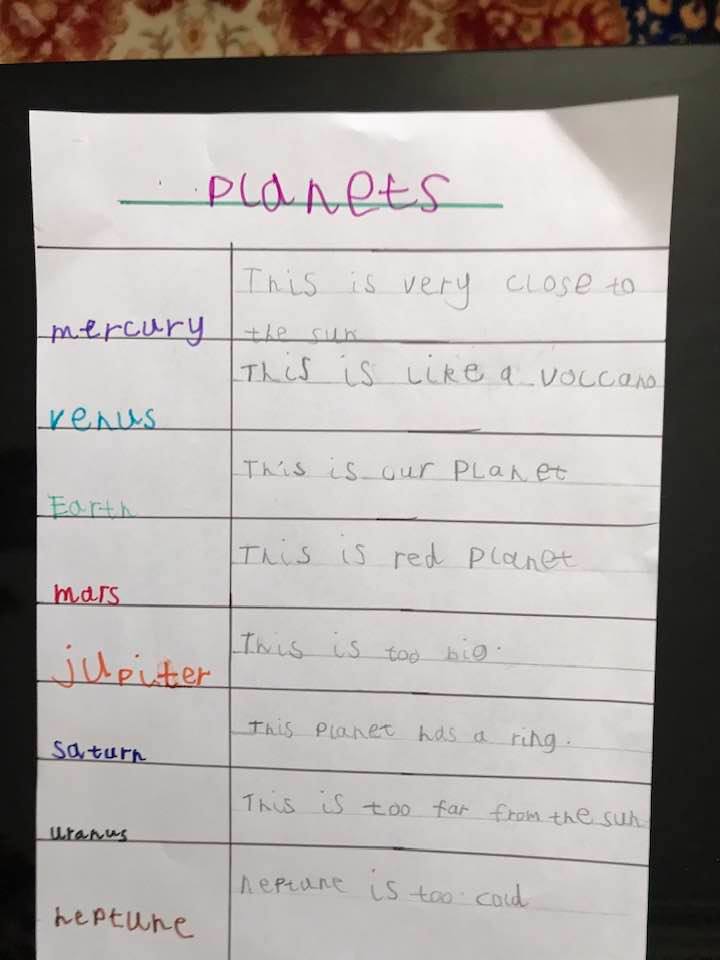 planets
mercury
This is very close to
the sun
venus
This is like a volcano
Earth
This is our planet
mars
This is red planet
jupiter
This is too big.
saturn
This planet has a ring.
uranus
This is too far from the sun
neptune
neptune is too cold